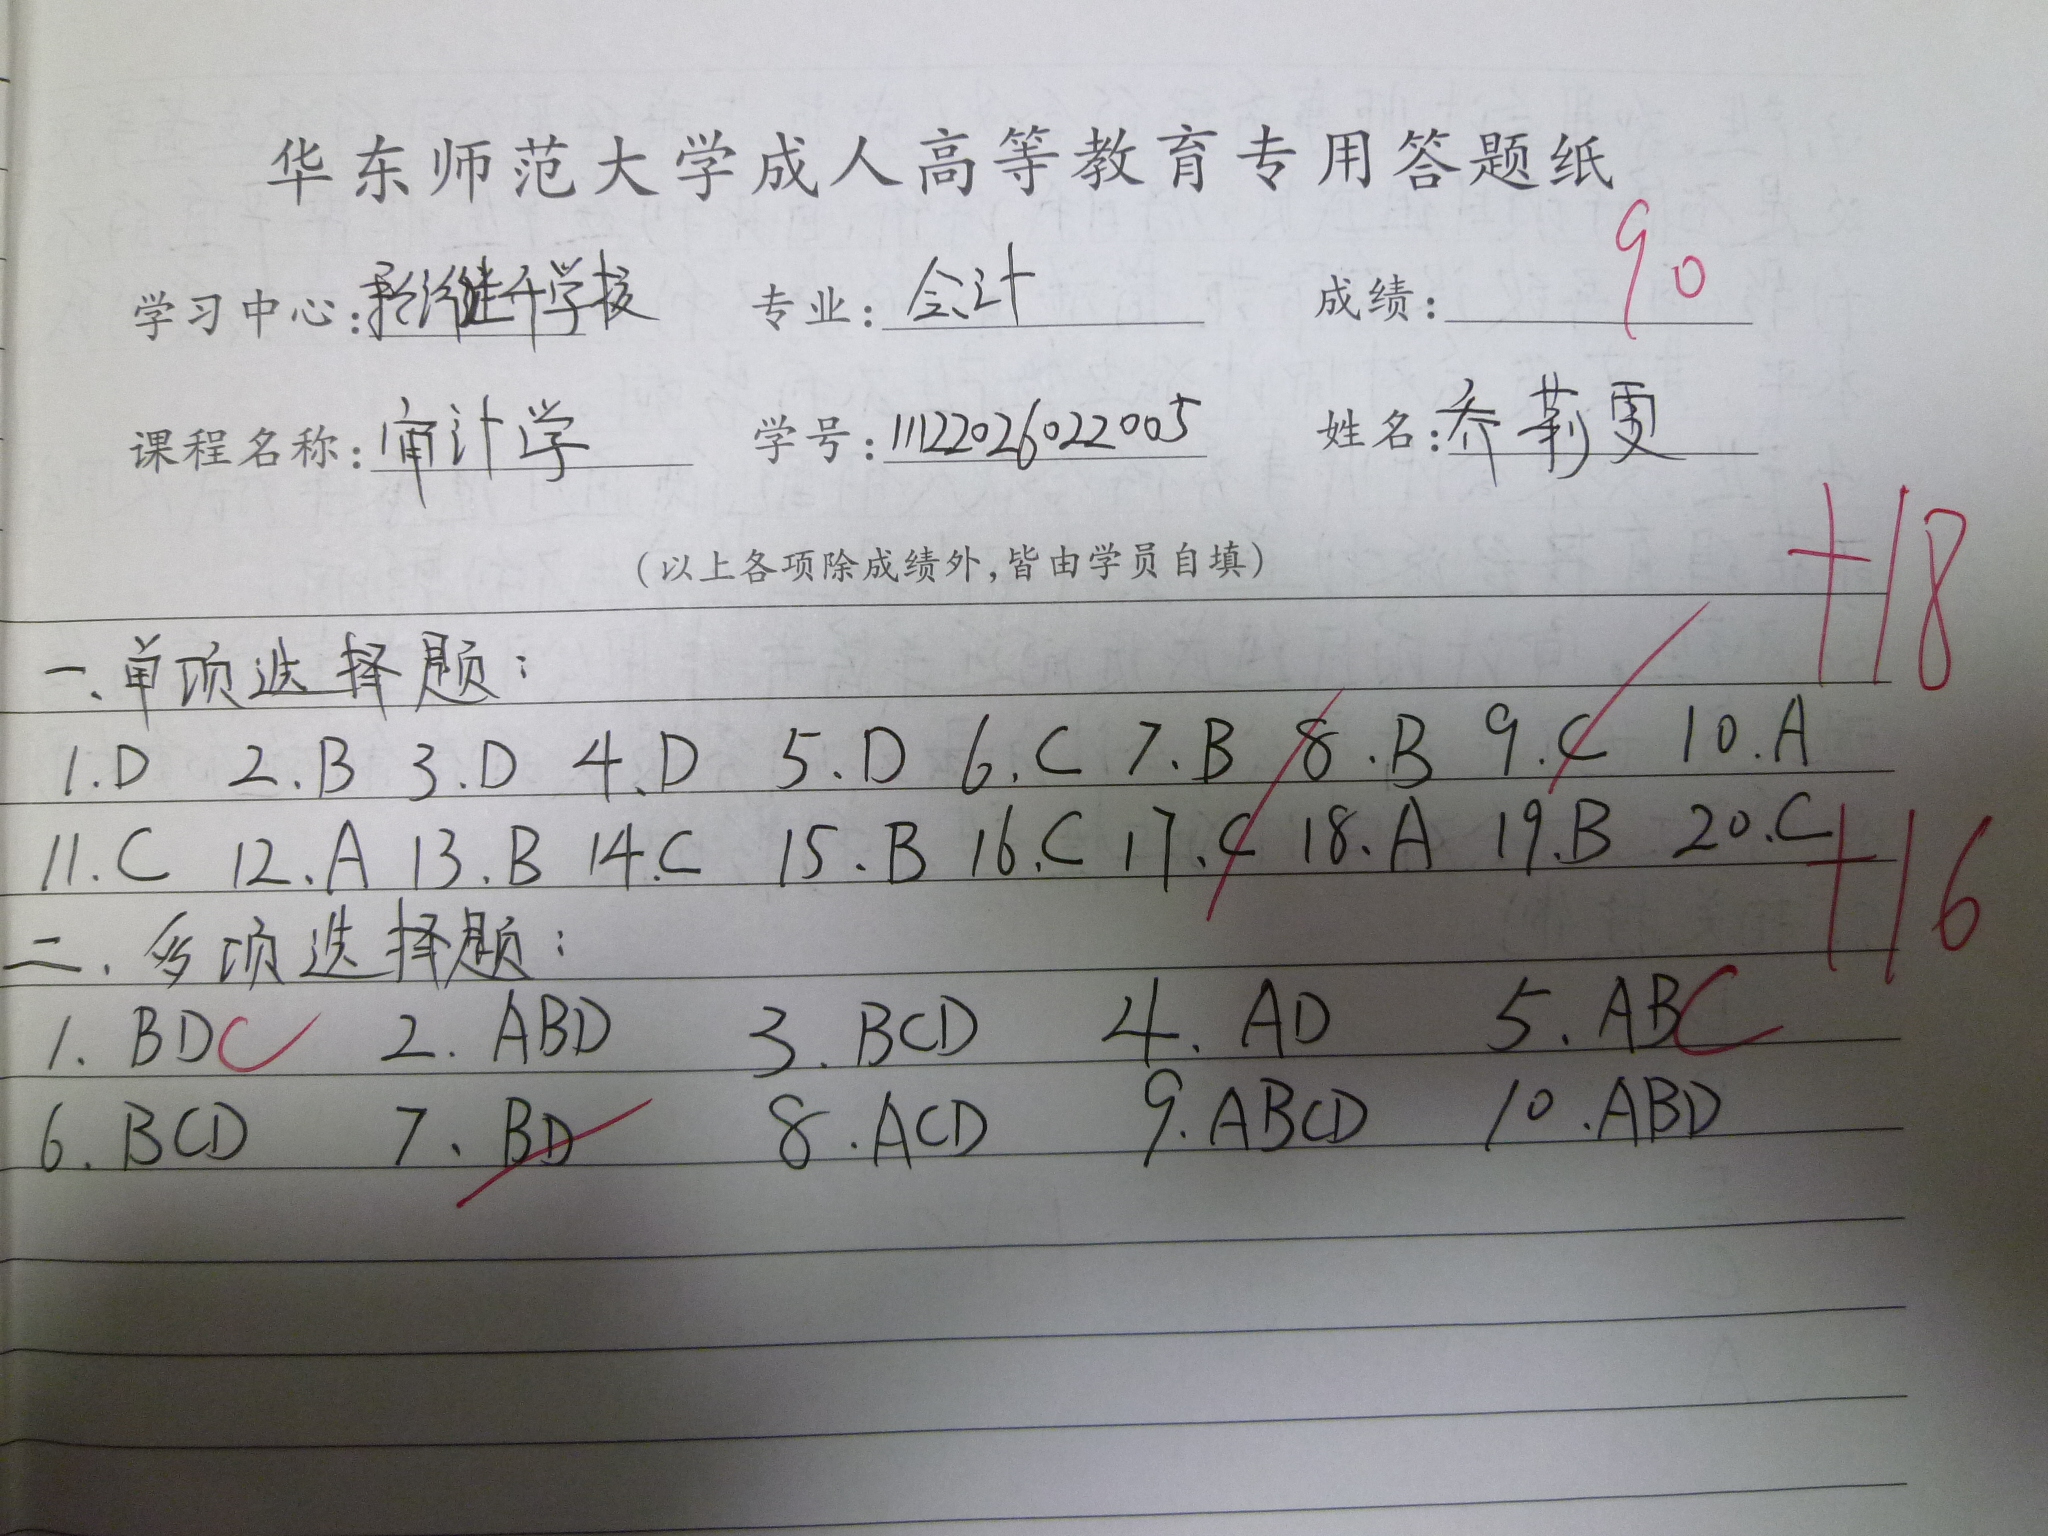 华东师范大学成人高等教育专用答题纸
学习中心: 继升学校 专业: 会计 成绩: 90
课程名称: 审计学 学号: 11122026022005 姓名: 乔莉雯
(以上各项除成绩外,皆由学员自填)
+18
一、单项选择题:
1.D 2.B 3.D 4.D 5.D 6.C 7.B 8.B 9.C 10.A
11.C 12.A 13.B 14.C 15.B 16.C 17.C 18.A 19.B 20.C
+16
二、多项选择题:
1. BDC 2. ABD 3. BCD 4. AD 5. ABC
6. BCD 7. BD 8. ACD 9. ABCD 10. ABD